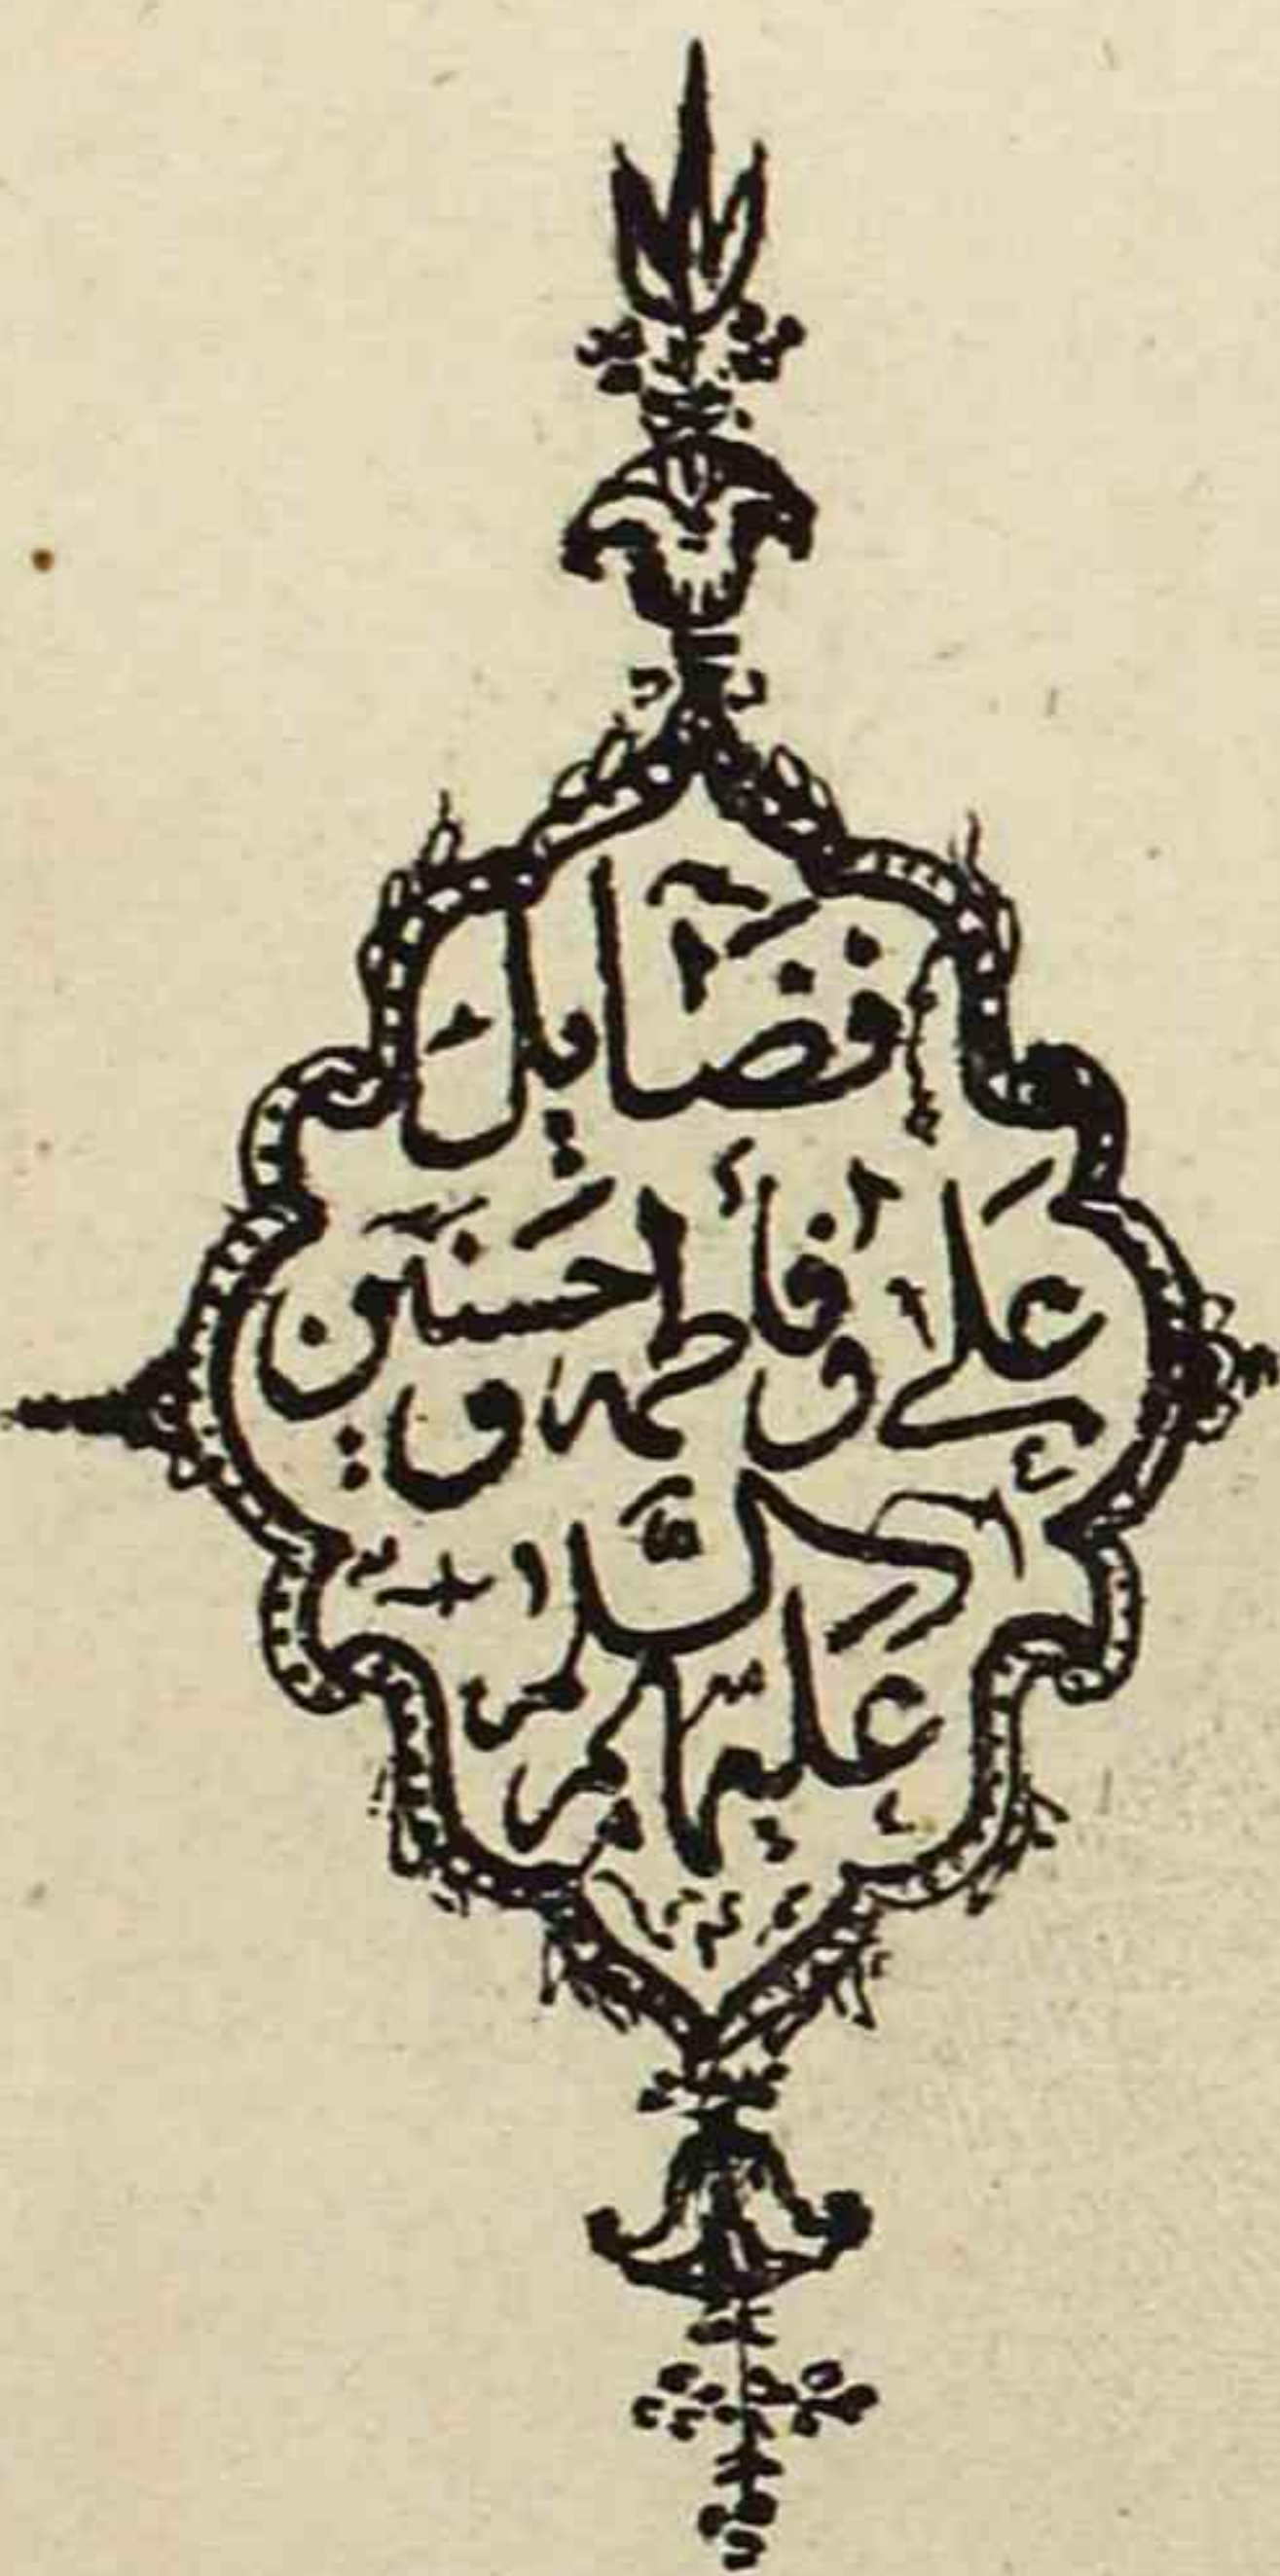 فضایل
علے و فاطمه و حسنین
علیهم السلام